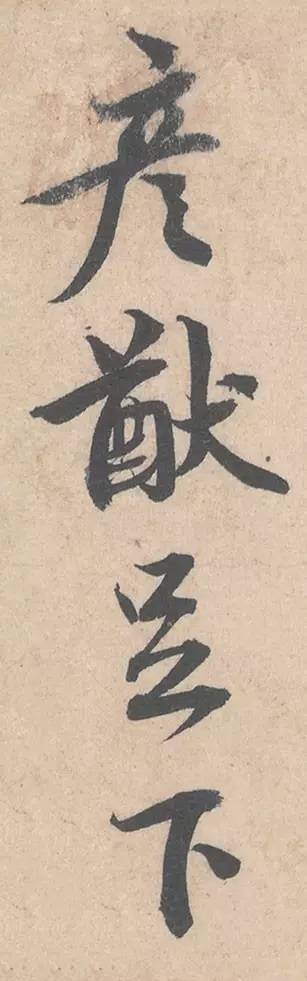 彦猷足下